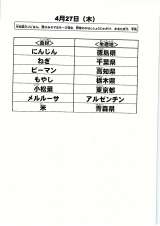 4月27日(木)
<食材> <生産地>
にんじん 徳島県
ねぎ 千葉県
ピーマン 高知県
もやし 栃木県
小松菜 東京都
メルルーサ アルゼンチン
米 青森県